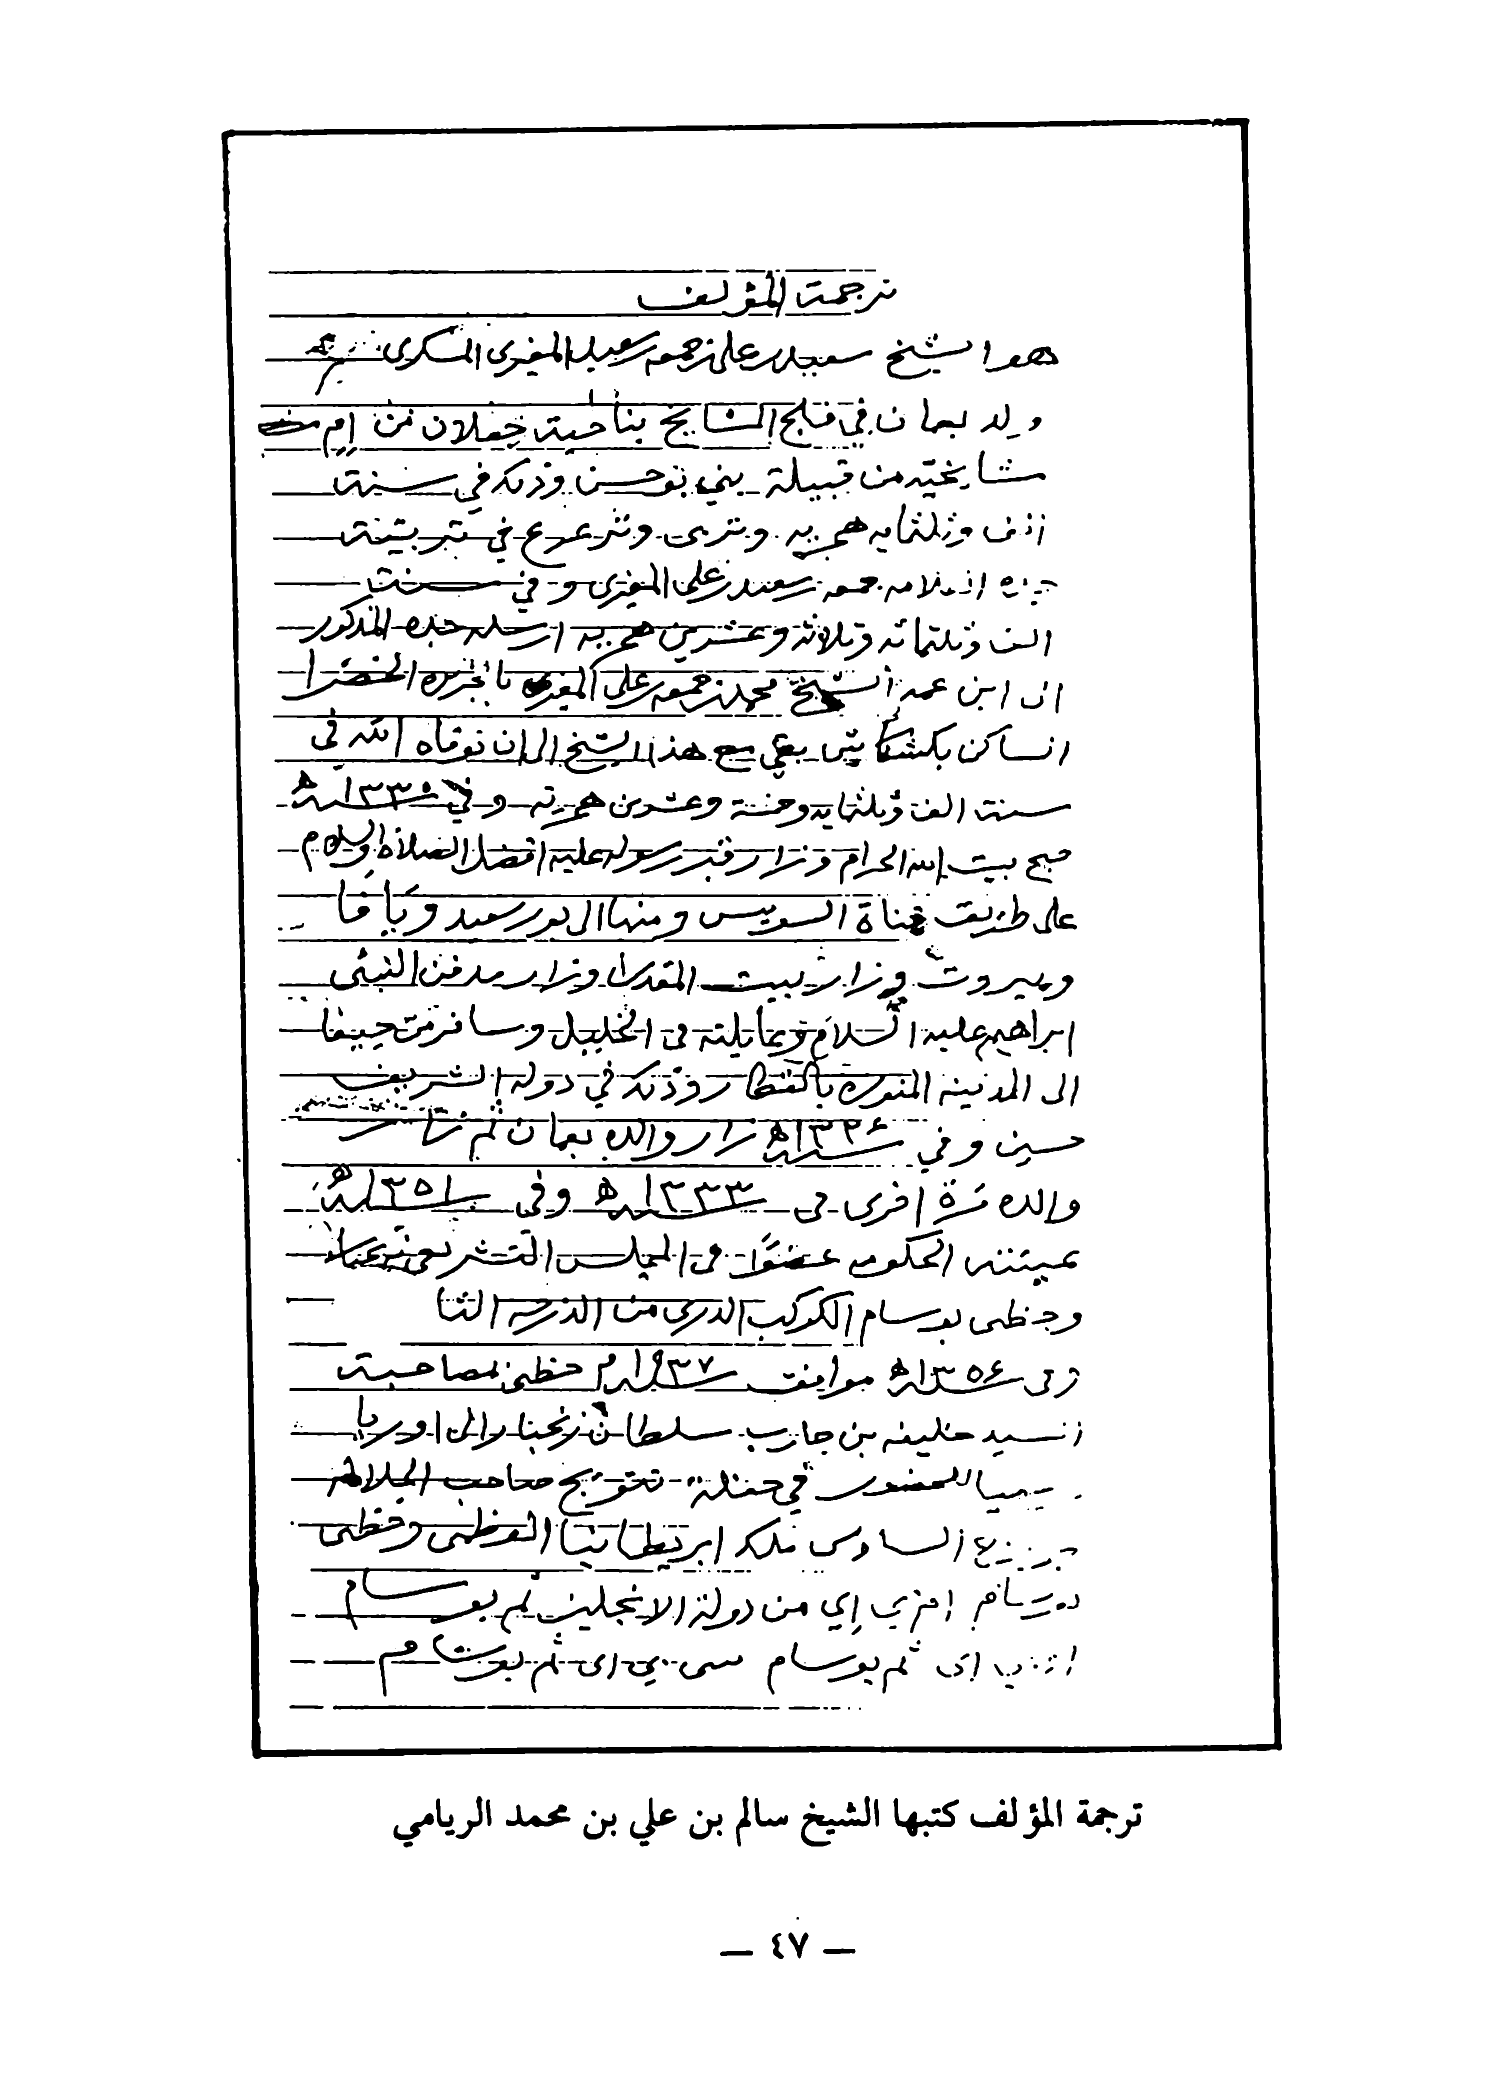 ترجمة المؤلف
هو الشيخ سعيد بن علي بن جمعه بن سعيد المغيرى
ولد بعمان في فلج المشايخ بناحية جعلان من ام
مشايخيه من قبيلة بني بو حسن وذلك في سنة
الف وثلثمايه هجريه وتربى وترعرع في تربيته
جده العلامه جمعه بن سعيد بن علي المغيرى وفي سنة
الف وثلثمائه وثلاثه وعشرين هجريه ارسله جده المذكور
الى ابن عمه الشيخ محمد بن جمعه بن علي المغيرى بالجزيره الخضرا
الساكن بقي مع هذا الشيخ الى ان توفاه الله في
سنة الف وثلثمايه وخمسة وعشرين هجرته وفي سنة ١٣٣٥ه
حج بيت الله الحرام وزار قبر رسوله عليه افضل الصلاة والسلام
على طريق قناة السويس ومنها الى بور سعيد ويافا
وبيروت وزار بيت المقدس وزار مدفن النبي
ابراهيم عليه السلام وعايلته في الخليل وسافر من حيفا
الى المدينه المنوره بالقطار وذلك في دولة الشريف
حسين وفي سنة ١٣٢٦ه زار والده بعمان ثم زار
والده مرة اخرى في سنة ١٣٣٣ه وفى سنة ١٣٥١ه
عينته الحكومه عضوًا في المجلس التشريعي
وحظي بوسام الكوكب الدرى من الدرجه الثا
وفى سنة ١٣٥٦ه موافق سنة ١٩٣٧م حظي لمصاحبة
السيد خليفه بن حارب سلطان زنجبار الى اوربا
للحضور في حفلة تتويج صاحب الجلاله
جورج السادس ملك ابريطانيا العظمى وحظي
بوسام ام بي إي من دولة الانجليز ثم بوسام
او بي اى ثم بوسام سي بي اى ثم بوسام
ترجمة المؤلف كتبها الشيخ سالم بن علي بن محمد الريامي
— ٤٧ —